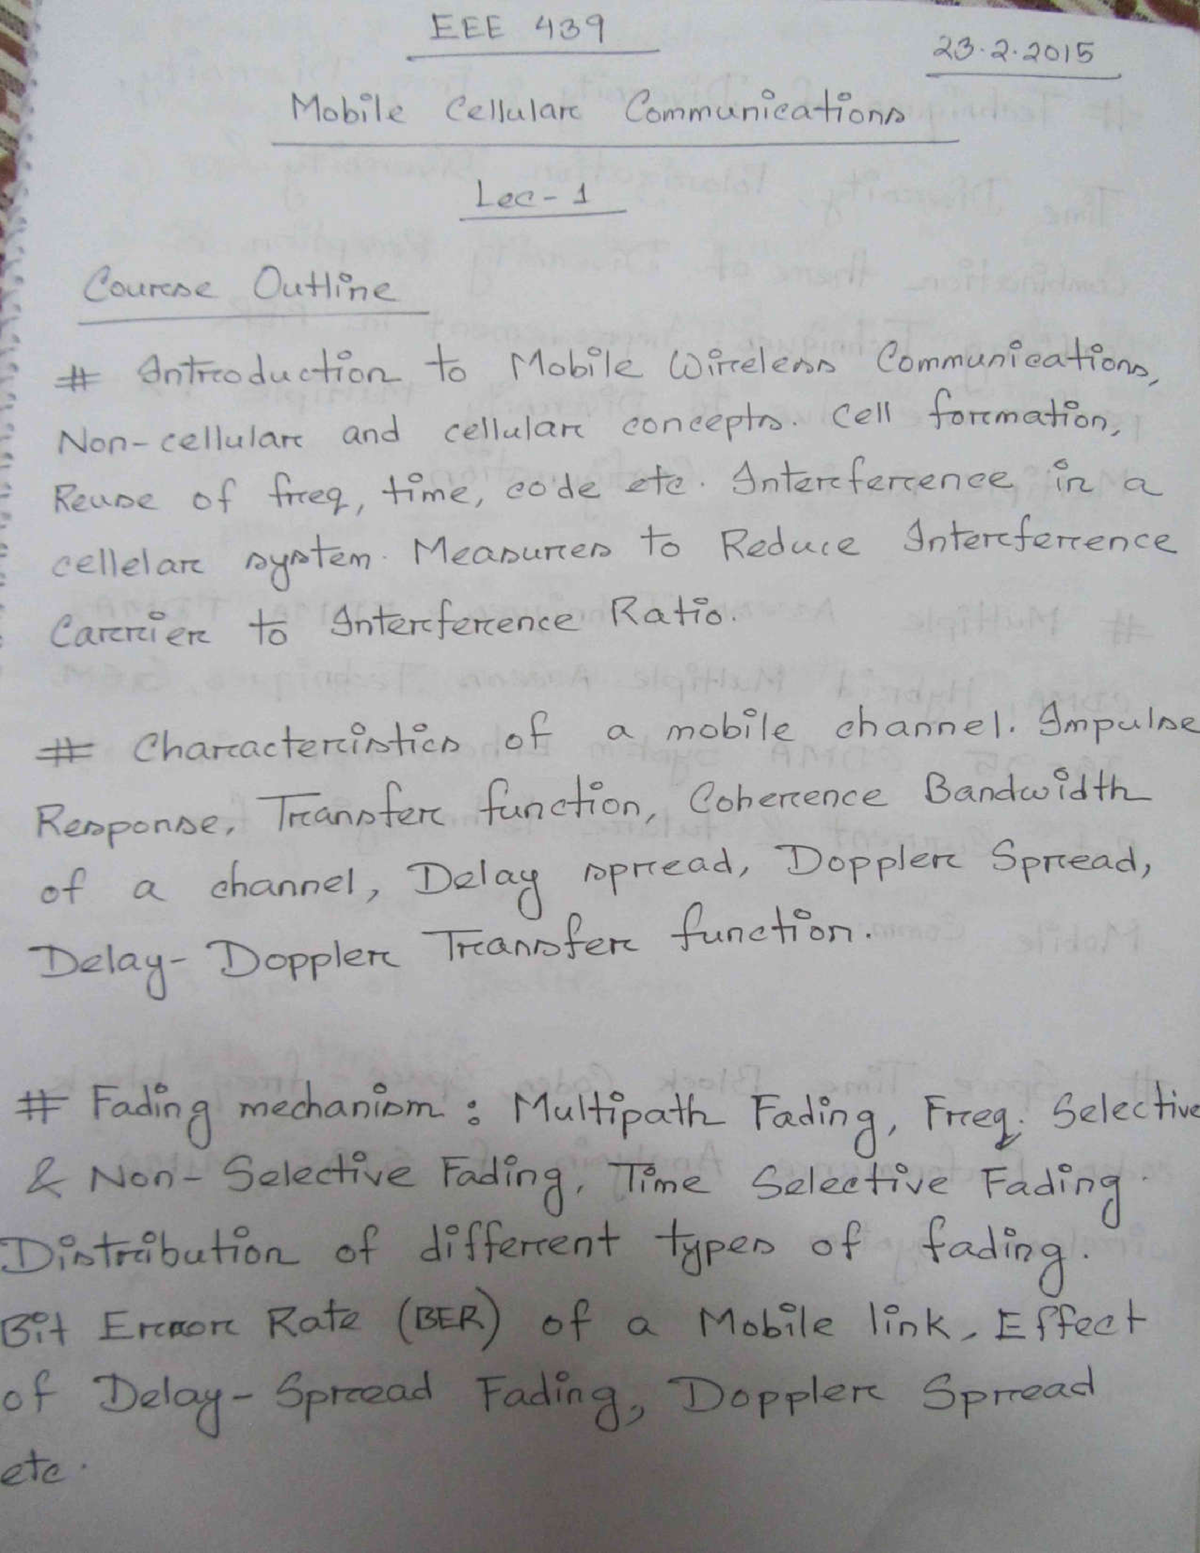 EEE 439
23.2.2015
Mobile Cellular Communications
Lec-1
Course Outline
# Introduction to Mobile Wireless Communications,
Non-cellular and cellular concepts. Cell formation,
Reuse of freq, time, code etc. Interference in a
cellelar system. Measures to Reduce Interference
Carrier to Interference Ratio.
# Characteristics of a mobile channel. Impulse
Response, Transfer function, Coherence Bandwidth
of a channel, Delay spread, Doppler Spread,
Delay-Doppler Transfer function.
# Fading mechanism : Multipath Fading, Freq. Selective
& Non-Selective Fading, Time Selective Fading.
Distribution of different types of fading.
Bit Error Rate (BER) of a Mobile link, Effect
of Delay-Spread Fading, Doppler Spread
etc.